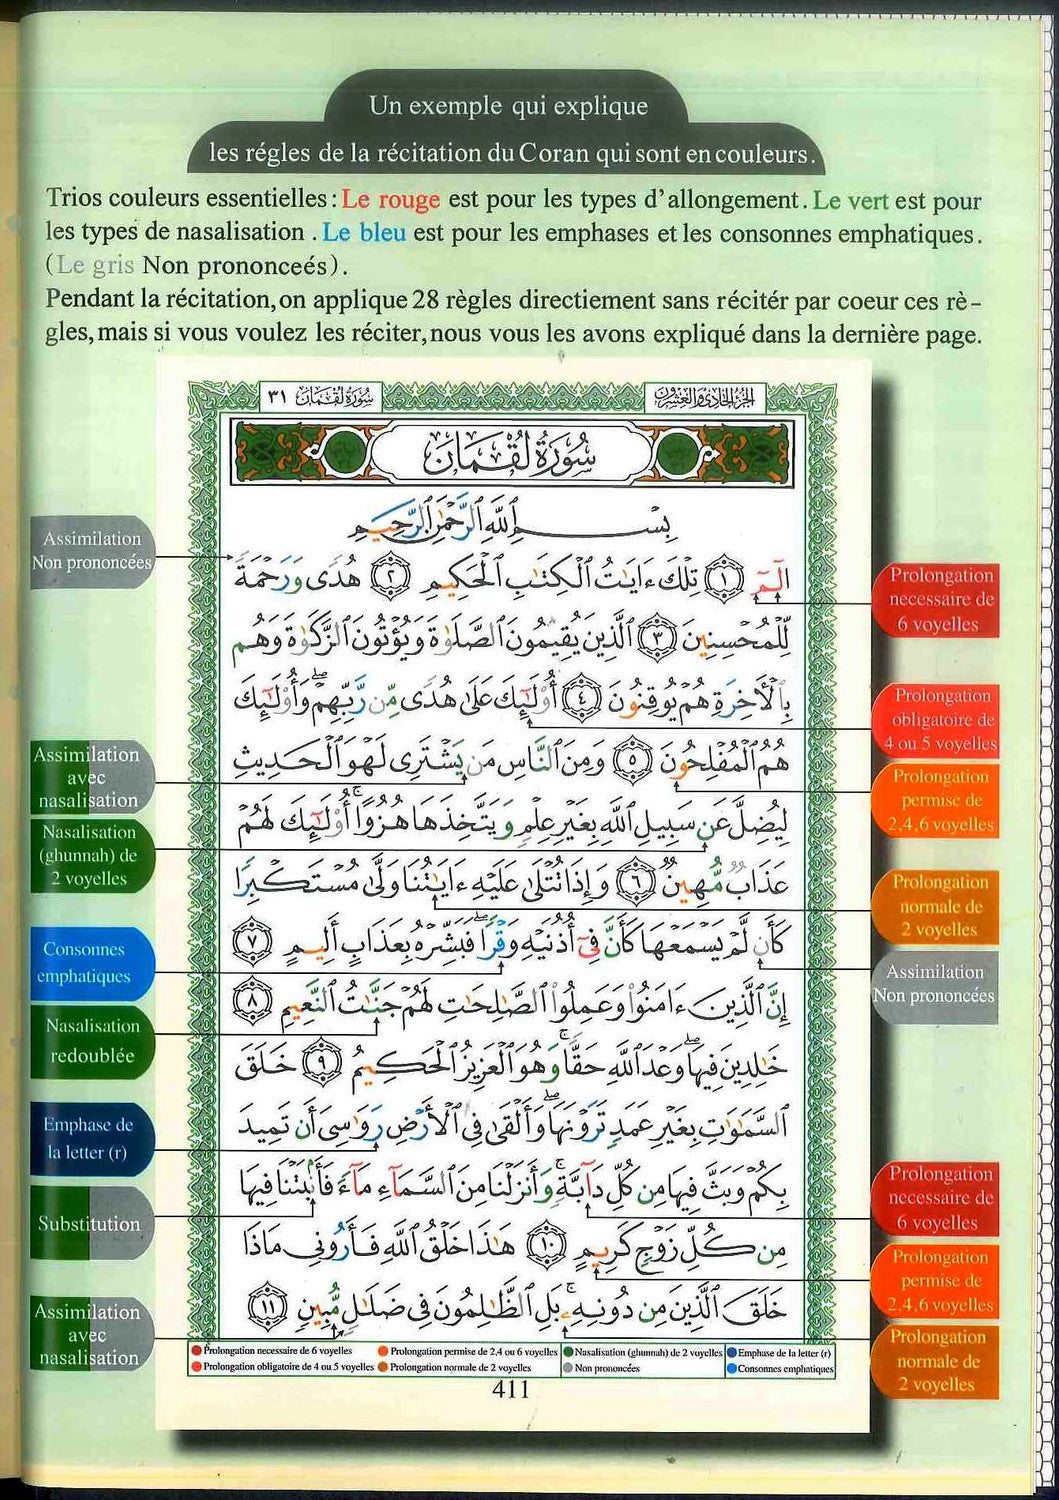 Un exemple qui explique
les régles de la récitation du Coran qui sont en couleurs.
Trios couleurs essentielles: Le rouge est pour les types d'allongement. Le vert est pour
les types de nasalisation. Le bleu est pour les emphases et les consonnes emphatiques.
(Le gris Non prononceés).
Pendant la récitation, on applique 28 règles directiement sans récitér par coeur ces rè-
gles, mais si vous voulez les réciter, nous vous les avons expliqué dans la dernière page.
الجزء الحادي والعشرون
سورة لقمان ٣١
سُورَةُ لُقْمَان
بِسْمِ ٱللَّهِ ٱلرَّحْمَٰنِ ٱلرَّحِيمِ
الٓمٓ ١ تِلْكَ ءَايَٰتُ ٱلْكِتَٰبِ ٱلْحَكِيمِ ٢ هُدًى وَرَحْمَةً
لِّلْمُحْسِنِينَ ٣ ٱلَّذِينَ يُقِيمُونَ ٱلصَّلَوٰةَ وَيُؤْتُونَ ٱلزَّكَوٰةَ وَهُم
بِٱلْءَاخِرَةِ هُمْ يُوقِنُونَ ٤ أُو۟لَٰٓئِكَ عَلَىٰ هُدًى مِّن رَّبِّهِمْ ۖ وَأُو۟لَٰٓئِكَ
هُمُ ٱلْمُفْلِحُونَ ٥ وَمِنَ ٱلنَّاسِ مَن يَشْتَرِى لَهْوَ ٱلْحَدِيثِ
لِيُضِلَّ عَن سَبِيلِ ٱللَّهِ بِغَيْرِ عِلْمٍ وَيَتَّخِذَهَا هُزُوًا ۚ أُو۟لَٰٓئِكَ لَهُمْ
عَذَابٌ مُّهِينٌ ٦ وَإِذَا تُتْلَىٰ عَلَيْهِ ءَايَٰتُنَا وَلَّىٰ مُسْتَكْبِرًا
كَأَن لَّمْ يَسْمَعْهَا كَأَنَّ فِىٓ أُذُنَيْهِ وَقْرًا ۖ فَبَشِّرْهُ بِعَذَابٍ أَلِيمٍ ٧
إِنَّ ٱلَّذِينَ ءَامَنُوا۟ وَعَمِلُوا۟ ٱلصَّٰلِحَٰتِ لَهُمْ جَنَّٰتُ ٱلنَّعِيمِ ٨
خَٰلِدِينَ فِيهَا ۖ وَعْدَ ٱللَّهِ حَقًّا ۚ وَهُوَ ٱلْعَزِيزُ ٱلْحَكِيمُ ٩ خَلَقَ
ٱلسَّمَٰوَٰتِ بِغَيْرِ عَمَدٍ تَرَوْنَهَا ۖ وَأَلْقَىٰ فِى ٱلْأَرْضِ رَوَٰسِىَ أَن تَمِيدَ
بِكُمْ وَبَثَّ فِيهَا مِن كُلِّ دَآبَّةٍ ۚ وَأَنزَلْنَا مِنَ ٱلسَّمَآءِ مَآءً فَأَنۢبَتْنَا فِيهَا
مِن كُلِّ زَوْجٍ كَرِيمٍ ١٠ هَٰذَا خَلْقُ ٱللَّهِ فَأَرُونِى مَاذَا
خَلَقَ ٱلَّذِينَ مِن دُونِهِۦ ۚ بَلِ ٱلظَّٰلِمُونَ فِى ضَلَٰلٍ مُّبِينٍ ١١
Assimilation
Non prononcées
Assimilation
avec
nasalisation
Nasalisation
(ghunnah) de
2 voyelles
Consonnes
emphatiques
Nasalisation
redoublée
Emphase de
la letter (r)
Substitution
Assimilation
avec
nasalisation
Prolongation
necessaire de
6 voyelles
Prolongation
obligatoire de
4 ou 5 voyelles
Prolongation
permise de
2,4,6 voyelles
Prolongation
normale de
2 voyelles
Assimilation
Non prononcées
Prolongation
necessaire de
6 voyelles
Prolongation
permise de
2,4,6 voyelles
Prolongation
normale de
2 voyelles
Prolongation necessaire de 6 voyelles Prolongation permise de 2,4 ou 6 voyelles Nasalisation (ghunnah) de 2 voyelles Emphase de la letter (r)
Prolongation obligatoire de 4 ou 5 voyelles Prolongation normale de 2 voyelles Non prononcées Consonnes emphatiques
411